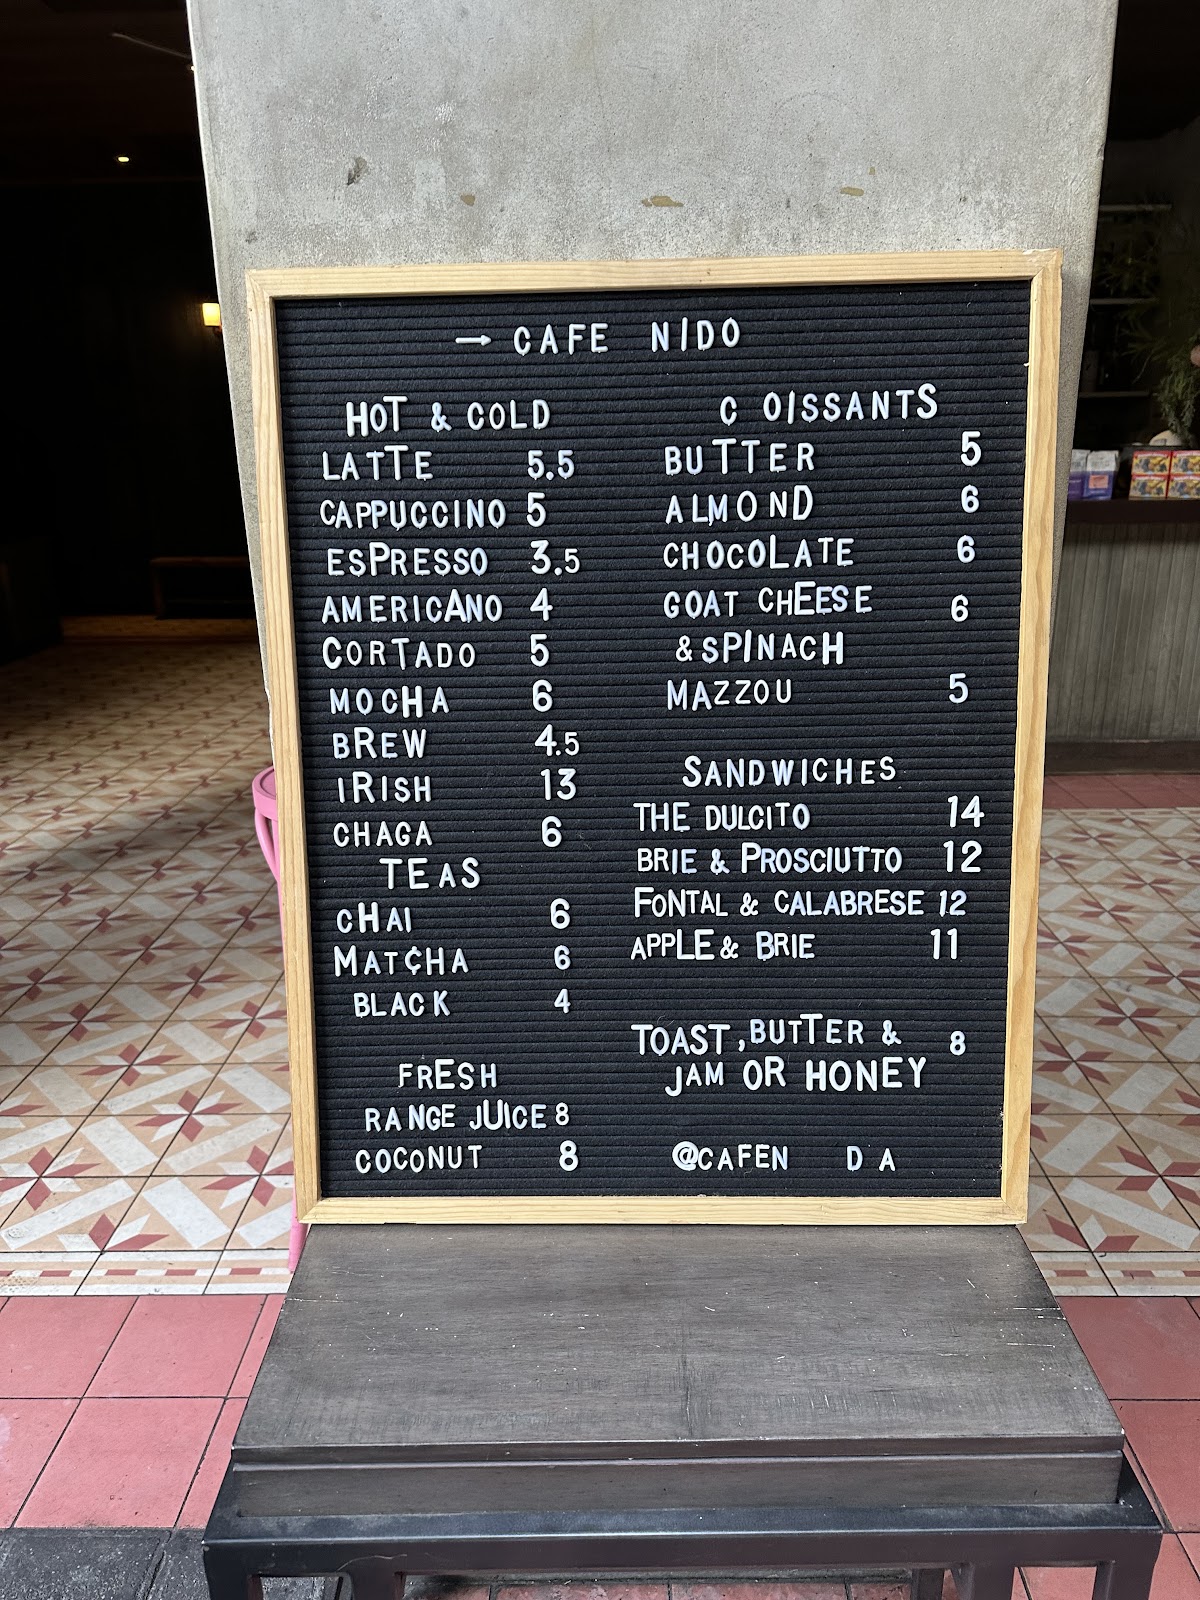 → CAFE NIDO
HOT & COLD
LATTE 5.5
CAPPUCCINO 5
ESPRESSO 3.5
AMERICANO 4
CORTADO 5
MOCHA 6
BREW 4.5
IRISH 13
CHAGA 6
TEAS
CHAI 6
MATCHA 6
BLACK 4
FRESH
RANGE JUICE 8
COCONUT 8
C OISSANTS
BUTTER 5
ALMOND 6
CHOCOLATE 6
GOAT CHEESE 6
& SPINACH
MAZZOU 5
SANDWICHES
THE DULCITO 14
BRIE & PROSCIUTTO 12
FONTAL & CALABRESE 12
APPLE & BRIE 11
TOAST, BUTTER & 8
JAM OR HONEY
@CAFEN D A